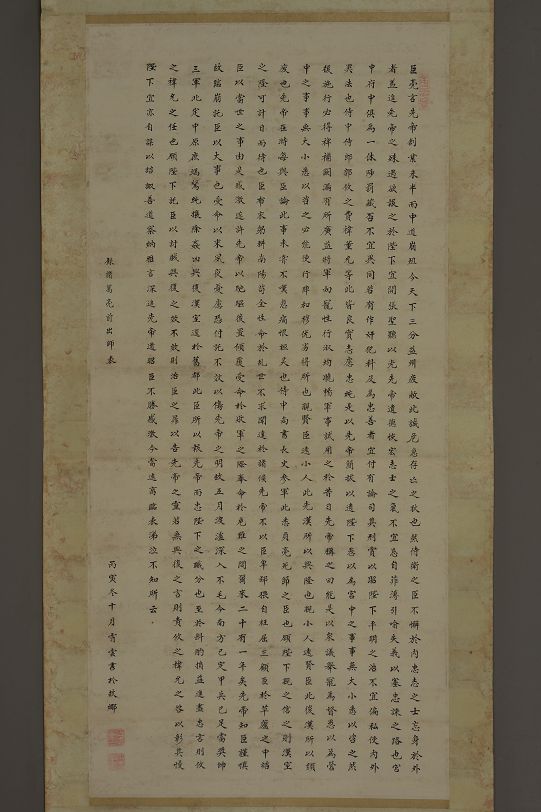 臣亮言先帝創業未半而中道崩殂今天下三分益州疲敝此誠危急存亡之秋也然侍衛之臣不懈於內忠志之士忘身於外
者蓋追先帝之殊遇欲報之於陛下宜開張聖聽以光先帝遺德恢宏志士之氣不宜妄自菲薄引喻失義以塞忠諫之路也宮
中府中俱為一体陟罰臧否不宜異同若有作奸犯科及為忠善者宜付有論司其刑賞以昭陛下平明之治不宜偏私使內外
異法也侍中侍郎郭攸之費禕董允等此皆良實志慮忠純是以先帝簡拔以遺陛下愚以為宮中之事事無大小悉以咨之然
後施行必得裨補闕漏有所廣益將軍向寵性行淑均曉暢軍事試用之於昔日先帝稱之曰能是以眾議舉寵為督愚以為營
中之事事無大小悉以咨之必能使行陣和穆優劣得所也親賢臣遠小人此先漢所以興隆也親小人遠賢臣此後漢所以傾
頹也先帝在時每與臣論此事未嘗不嘆息痛恨桓靈也侍中尚書長史參軍此悉貞亮死節之臣也願陛下親之信之則漢室
之隆可計日而待也臣布衣躬耕南陽苟全性命於亂世不求聞達於諸侯先帝不以臣卑鄙猥自枉屈三顧臣於草廬之中諮
臣以當世之事由是感激遂許先帝以馳驅後值傾覆受命於敗軍之際奉命於危難之間爾來二十有一年矣先帝知臣謹慎
故臨崩託臣以大事也受命以來夙夜憂慮恐付托不效以傷先帝之明故五月渡瀘深入不毛今南方已定甲兵已足當獎帥
三軍北定中原庶竭駑鈍攘除姦凶興復漢室還於舊都此臣所以報先帝而忠陛下之職分也至於斟酌損益進盡忠言則攸
之禕允之任也願陛下託臣以討賊興復之效不效則治臣之罪以告先帝之靈若無興復之言則責攸之禕允之咎以彰其慢
陛下宜亦自謀以諮諏善道察納雅言深追先帝遺詔臣不勝感激今當遠離臨表涕泣不知所云
錄諸葛亮前出師表
丙寅冬十月青雲書於故鄉